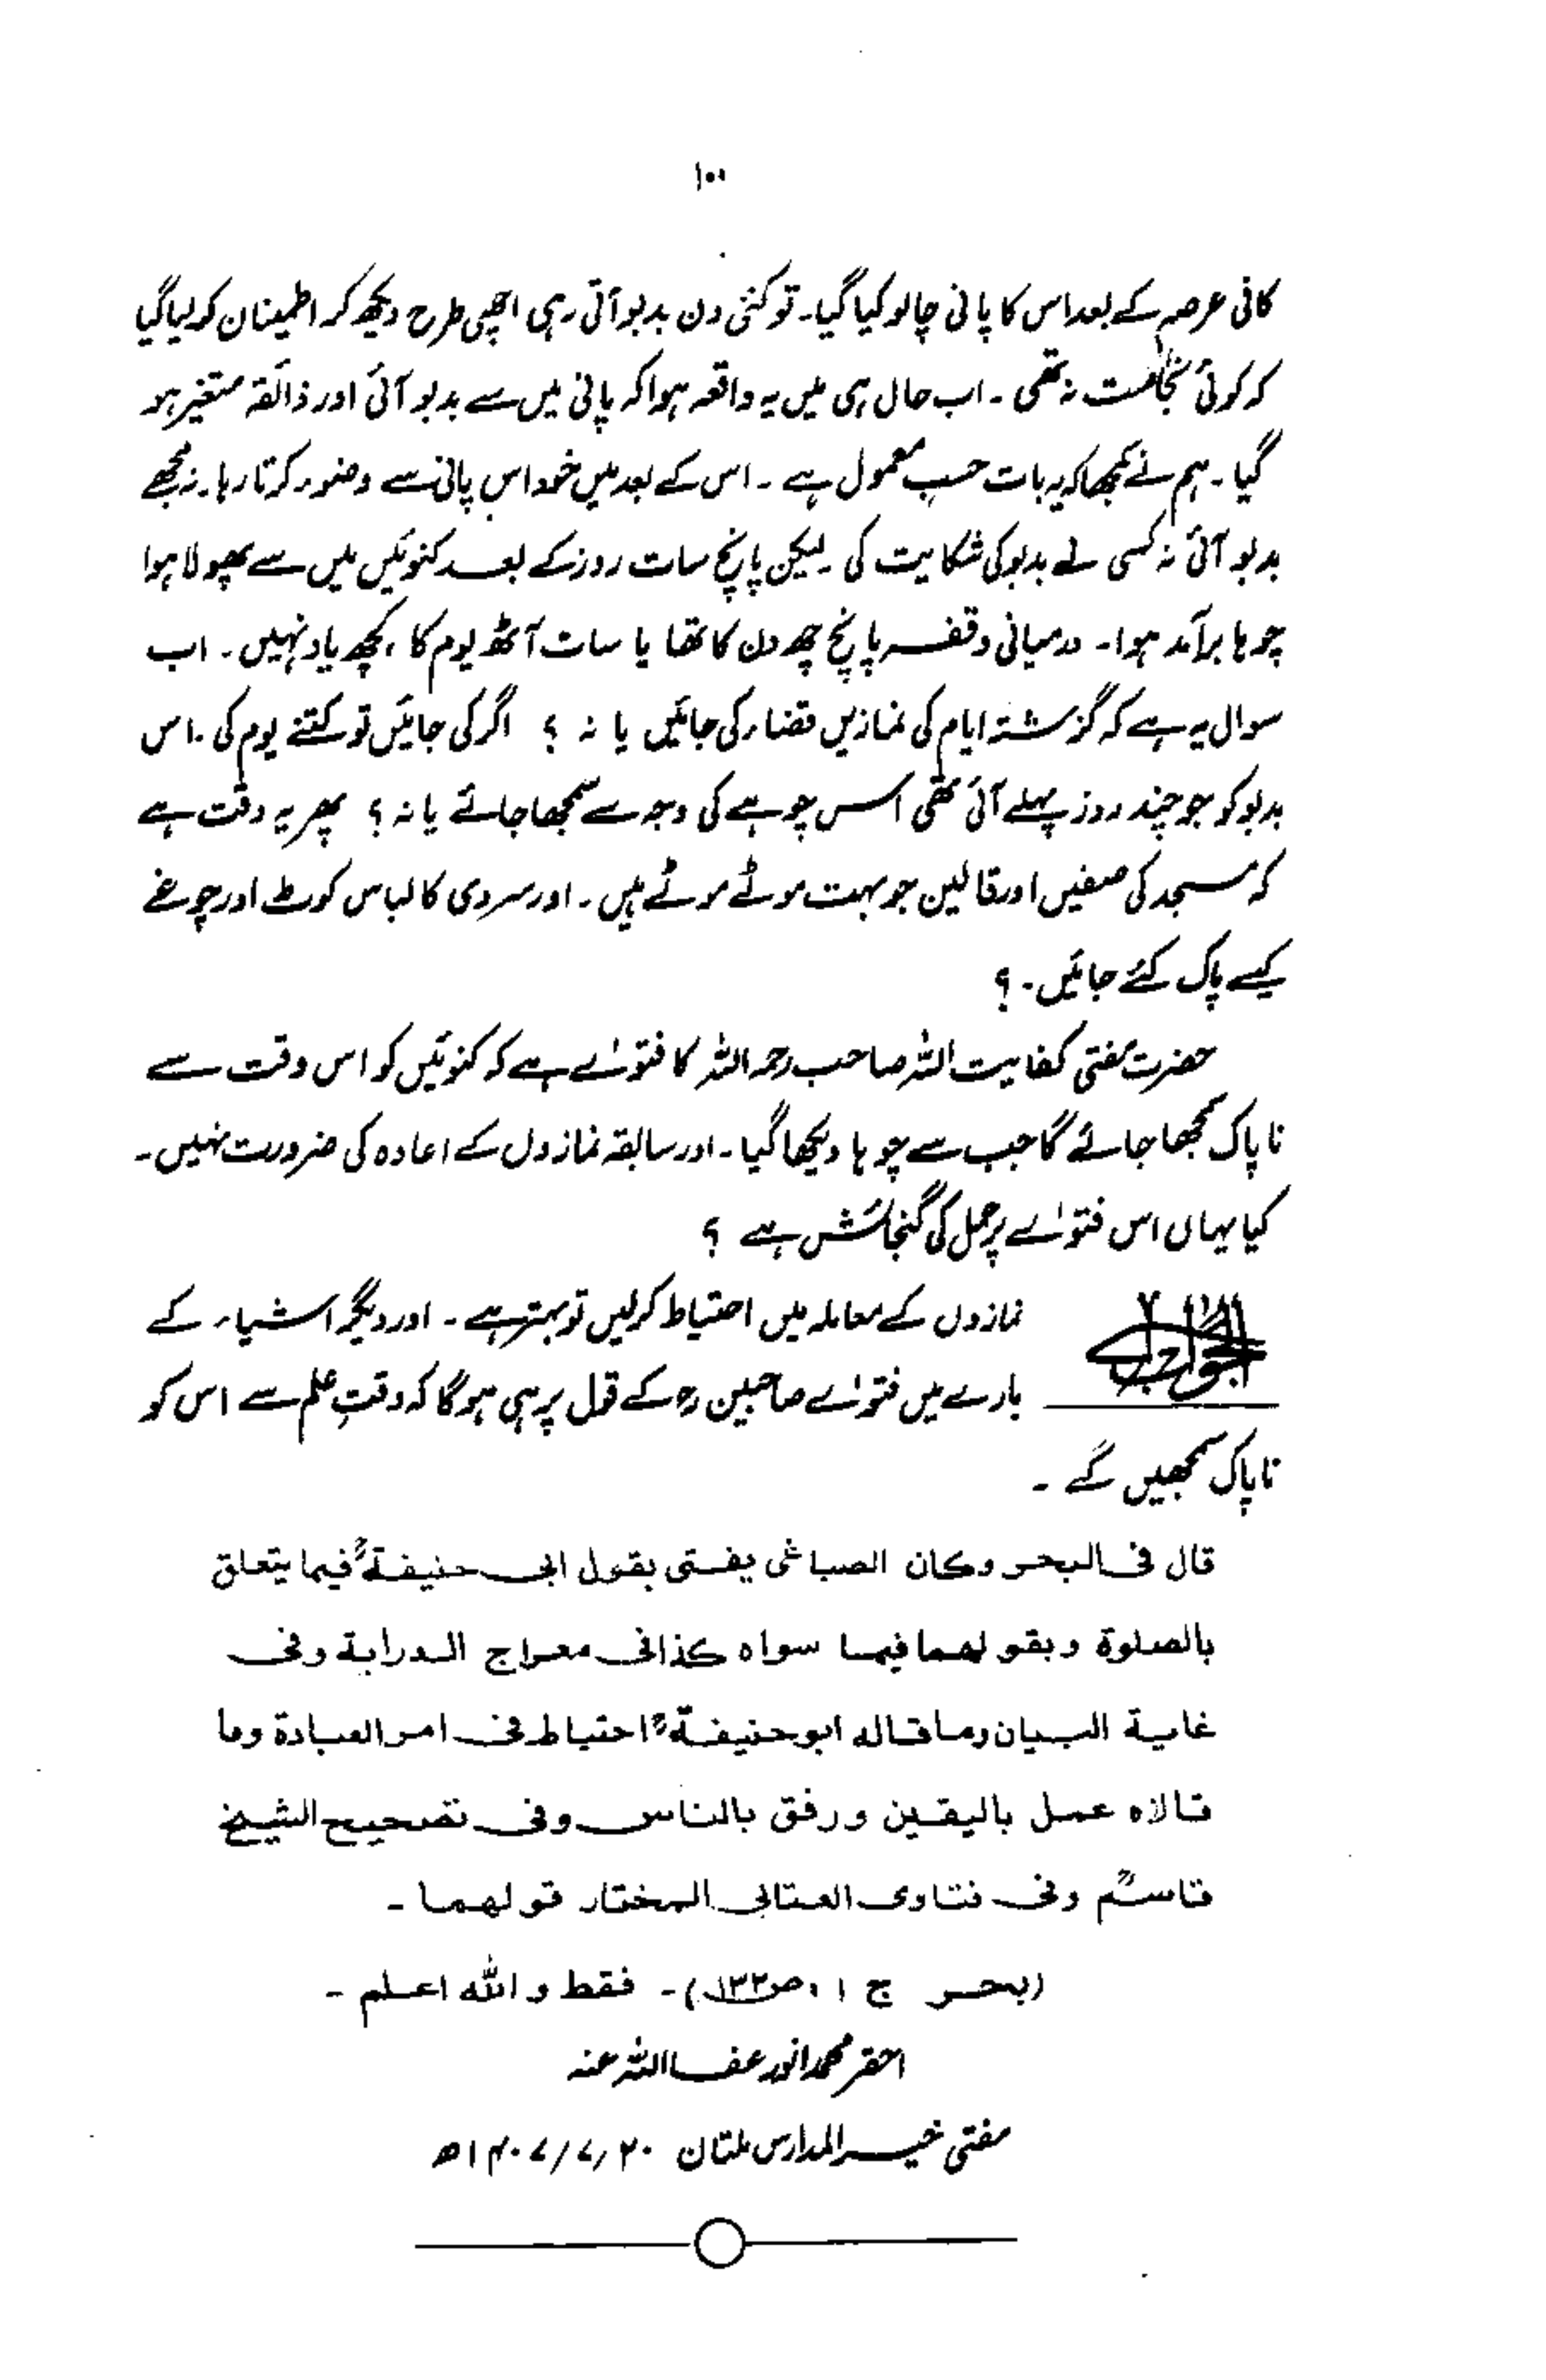 ۱۰۰
کافی عرصہ کے بعد اس کا پانی چالو کیا گیا۔ تو کئی دن بدبو آتی رہی اچھی طرح دیکھ کر اطمینان کر لیا گیا
کہ کوئی نجاست نہ تھی ۔ اب حال ہی میں یہ واقعہ ہوا کہ پانی میں سے بدبو آئی اور ذائقہ متغیر ہو
گیا۔ ہم نے سمجھا کہ یہ بات حسبِ معمول ہے ۔ اس کے بعد میں خود اس پانی سے وضوء کرتا رہا۔ نہ مجھے
بدبو آئی نہ کسی نے بدبو کی شکایت کی ۔ لیکن پانچ سات روز کے بعد کنوئیں میں سے پھولا ہوا
چوہا برآمد ہوا۔ درمیانی وقفہ پانچ چھ دن کا تھا یا سات آٹھ یوم کا ، کچھ یاد نہیں ۔ اب
سوال یہ ہے کہ گزشتہ ایام کی نمازیں قضاء کی جائیں یا نہ ؟ اگر کی جائیں تو کتنے یوم کی ۔ اس
بدبو کو جو چند روز پہلے آئی تھی اس چوہے کی وجہ سے سمجھا جائے یا نہ ؟ پھر یہ دقت ہے
کہ مسجد کی صفیں اور قالین جو بہت موٹے موٹے ہیں ۔ اور سردی کا لباس کوٹ اور چوغے
کیسے پاک کئے جائیں ۔ ؟
حضرت مفتی کفایت اللہ صاحب رحمہ اللہ کا فتویٰ ہے کہ کنوئیں کو اس وقت سے
ناپاک سمجھا جائے گا جب سے چوہا دیکھا گیا ۔ اور سابقہ نمازوں کے اعادہ کی ضرورت نہیں ۔
کیا یہاں اس فتویٰ پر عمل کی گنجائش ہے ؟
الجواب نمازوں کے معاملہ میں احتیاط کر لیں تو بہتر ہے ۔ اور دیگر اشیاء کے
بارے میں فتویٰ صاحبین رح کے قول پر ہی ہوگا کہ وقتِ علم سے اس کو
ناپاک سمجھیں گے ۔
قال فی البحر وکان الصباغی یفتی بقول ابی حنیفةؒ فیما یتعلق
بالصلوة وبقولهما فیما سواه کذا فی معراج الدرایة وفی
غایة البیان وما قاله ابو حنیفةؒ احتیاط فی امر العبادة وما
قالاه عمل بالیقین ورفق بالناس وفی تصحیح الشیخ
قاسمؒ وفی فتاوی العتابی المختار قولهما ۔
(بحر ج ۱ ، ص۱۳۲) ۔ فقط والله اعلم ۔
احقر محمد انور عفا اللہ عنہ
مفتی خیر المدارس ملتان ۲۰/۷/۱۴۰۷ھ